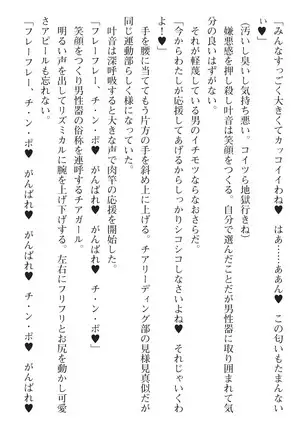 「みんなすっごく大きくてカッコイイわね♥　はあ……あぁん♥　この匂いもたまんな
い♥」
（汚いし臭いし気持ち悪い。コイツら地獄行きね）
嫌悪感を押し殺し叶音は笑顔をつくる。自分で選んだことだが男性器に取り囲まれて気
分の良いはずがない。
それが軽蔑している男のイチモツならなおさらだ。
「今からわたしが応援してあげるからしっかりシコシコしなさいよね♥　それじゃいくわ
よ♥」
手を腰に当ててもう片方の手を斜め上に上げる。チアリーディング部の見様見真似だが
同じ運動部らしく様になっていた。
叶音は深呼吸すると大きな声で肉竿の応援を開始した。
「フレーフレー、チ・ン・ポ♥　がんばれ♥　がんばれ♥　チ・ン・ポ♥」
笑顔をつくり男性器の俗称を連呼するチアガール。
明るい声を出してリズミカルに腕を上げ下げする。左右にフリフリとお尻を動かし可愛
さアピールも忘れない。
「フレーフレー、チ・ン・ポ♥　がんばれ♥　がんばれ♥　チ・ン・ポ♥　がんばれ♥